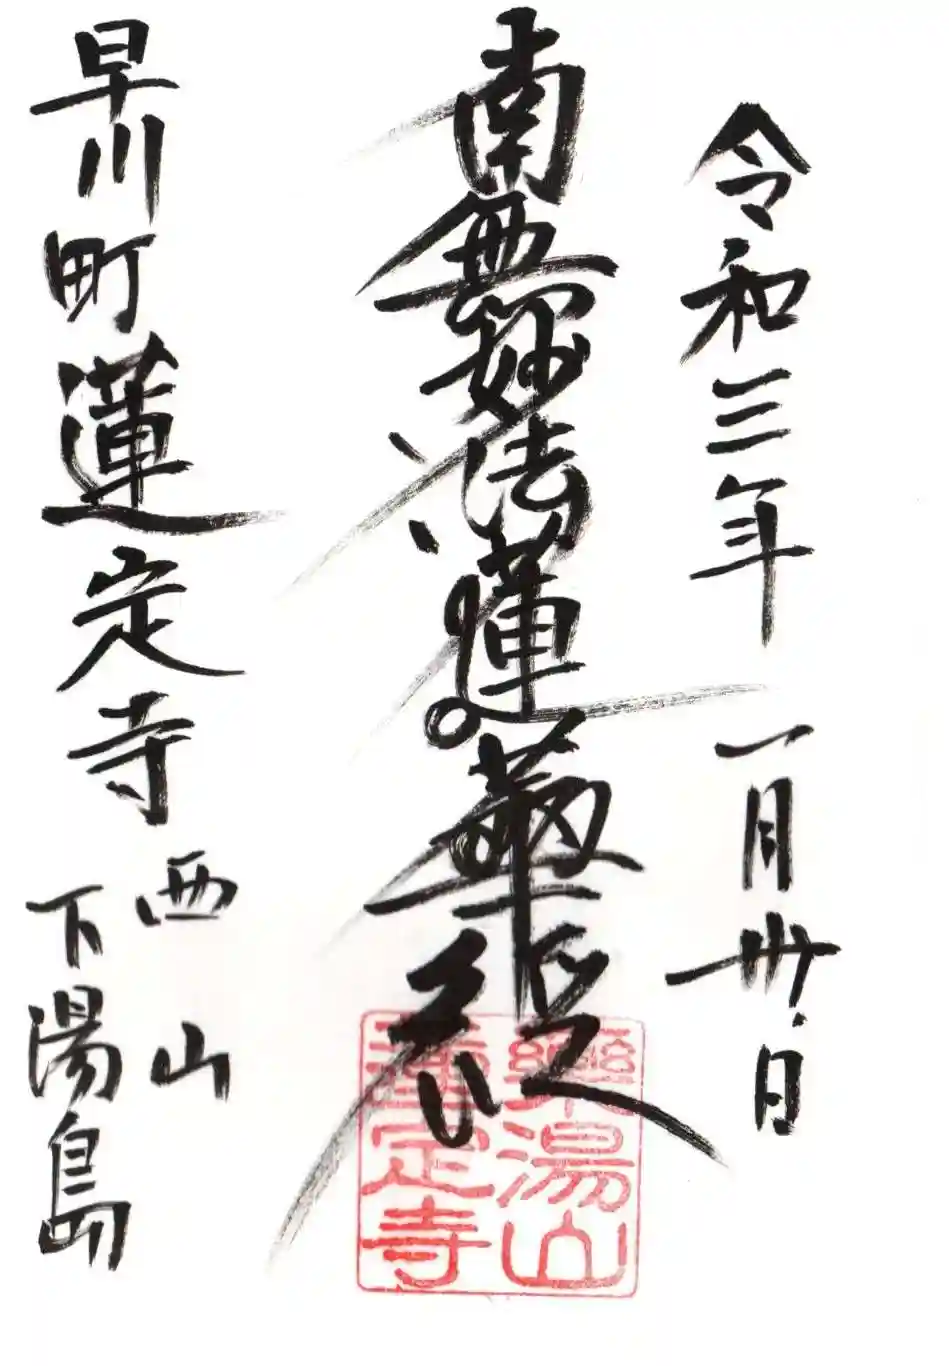 令和三年 一月卅日
南無妙法蓮華経
早川町蓮定寺
西山
下湯島
楽湯山
蓮定寺